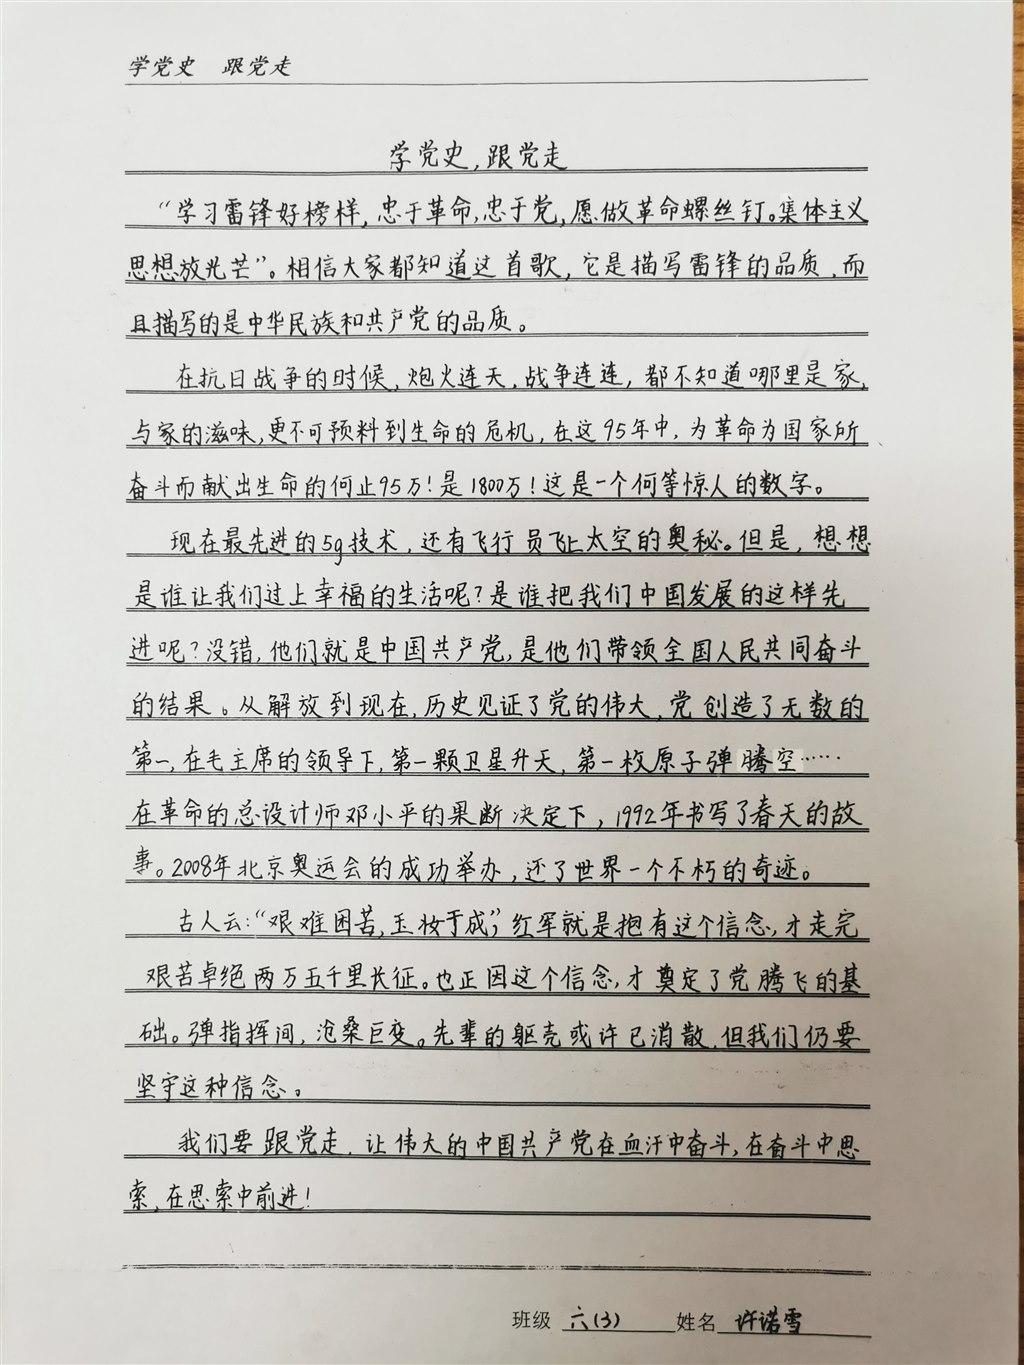 学党史 跟党走
学党史,跟党走
“学习雷锋好榜样,忠于革命,忠于党,愿做革命螺丝钉。集体主义
思想放光芒”。相信大家都知道这首歌,它是描写雷锋的品质,而
且描写的是中华民族和共产党的品质。
在抗日战争的时候,炮火连天,战争连连,都不知道哪里是家,
与家的滋味,更不可预料到生命的危机,在这95年中,为革命为国家所
奋斗而献出生命的何止95万!是1800万!这是一个何等惊人的数字。
现在最先进的5g技术,还有飞行员飞上太空的奥秘。但是,想想
是谁让我们过上幸福的生活呢?是谁把我们中国发展的这样先
进呢?没错,他们就是中国共产党,是他们带领全国人民共同奋斗
的结果。从解放到现在,历史见证了党的伟大,党创造了无数的
第一,在毛主席的领导下,第一颗卫星升天,第一枚原子弹腾空……
在革命的总设计师邓小平的果断决定下,1992年书写了春天的故
事。2008年北京奥运会的成功举办,还了世界一个不朽的奇迹。
古人云:“艰难困苦,玉妆于成”,红军就是抱有这个信念,才走完
艰苦卓绝两万五千里长征。也正因这个信念,才奠定了党腾飞的基
础。弹指挥间,沧桑巨变。先辈的躯壳或许已消散,但我们仍要
坚守这种信念。
我们要跟党走,让伟大的中国共产党在血汗中奋斗,在奋斗中思
索,在思索中前进!
班级 六(3) 姓名 许诺雪